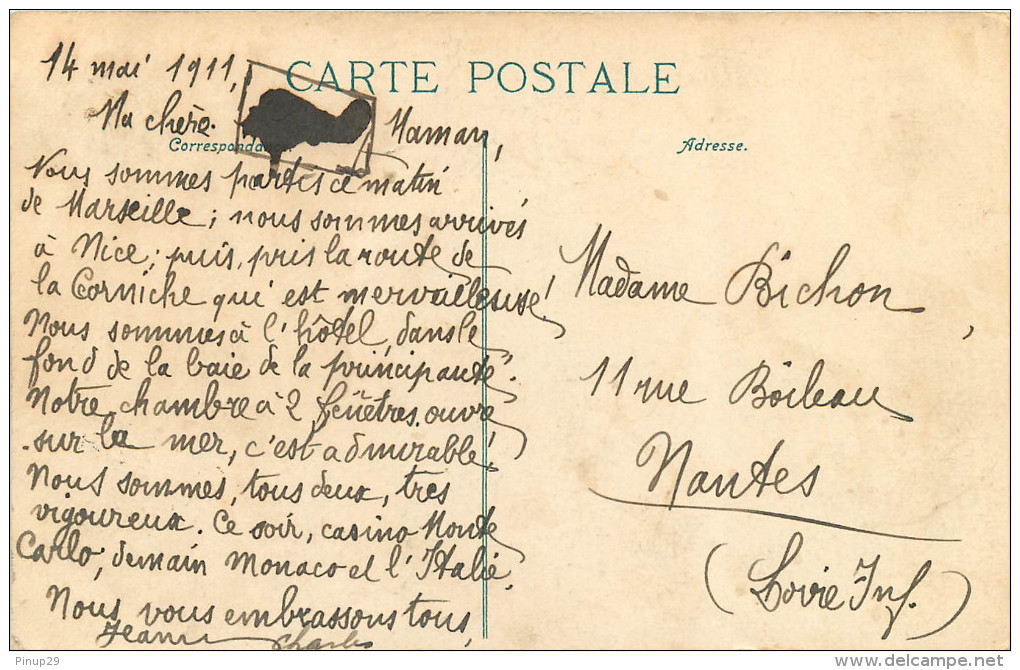 CARTE POSTALE
14 mai 1911,
Ma chère Maman,
Correspondance.
Adresse.
Nous sommes partis ce matin
de Marseille; nous sommes arrivés
à Nice; puis, pris la route de
la Corniche qui est merveilleuse!
Nous sommes à l'hôtel, dans le
fond de la baie de la principauté.
Notre chambre à 2 fenêtres ouvre
sur la mer, c'est admirable!
Nous sommes, tous deux, très
vigoureux. Ce soir, casino Monte
Carlo; demain Monaco et l'Italie.
Nous vous embrassons tous,
Jeanne Charles
Madame Bichon,
11 rue Boileau
Nantes
(Loire Inf.)
Pinup29
delcampe.net